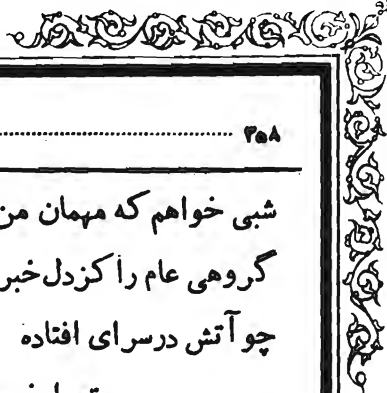 ۳۵۸ ........................................
شبی خواهم که مهمان من
گروهی عام را کزدل خبر
چو آتش درسرای افتاده